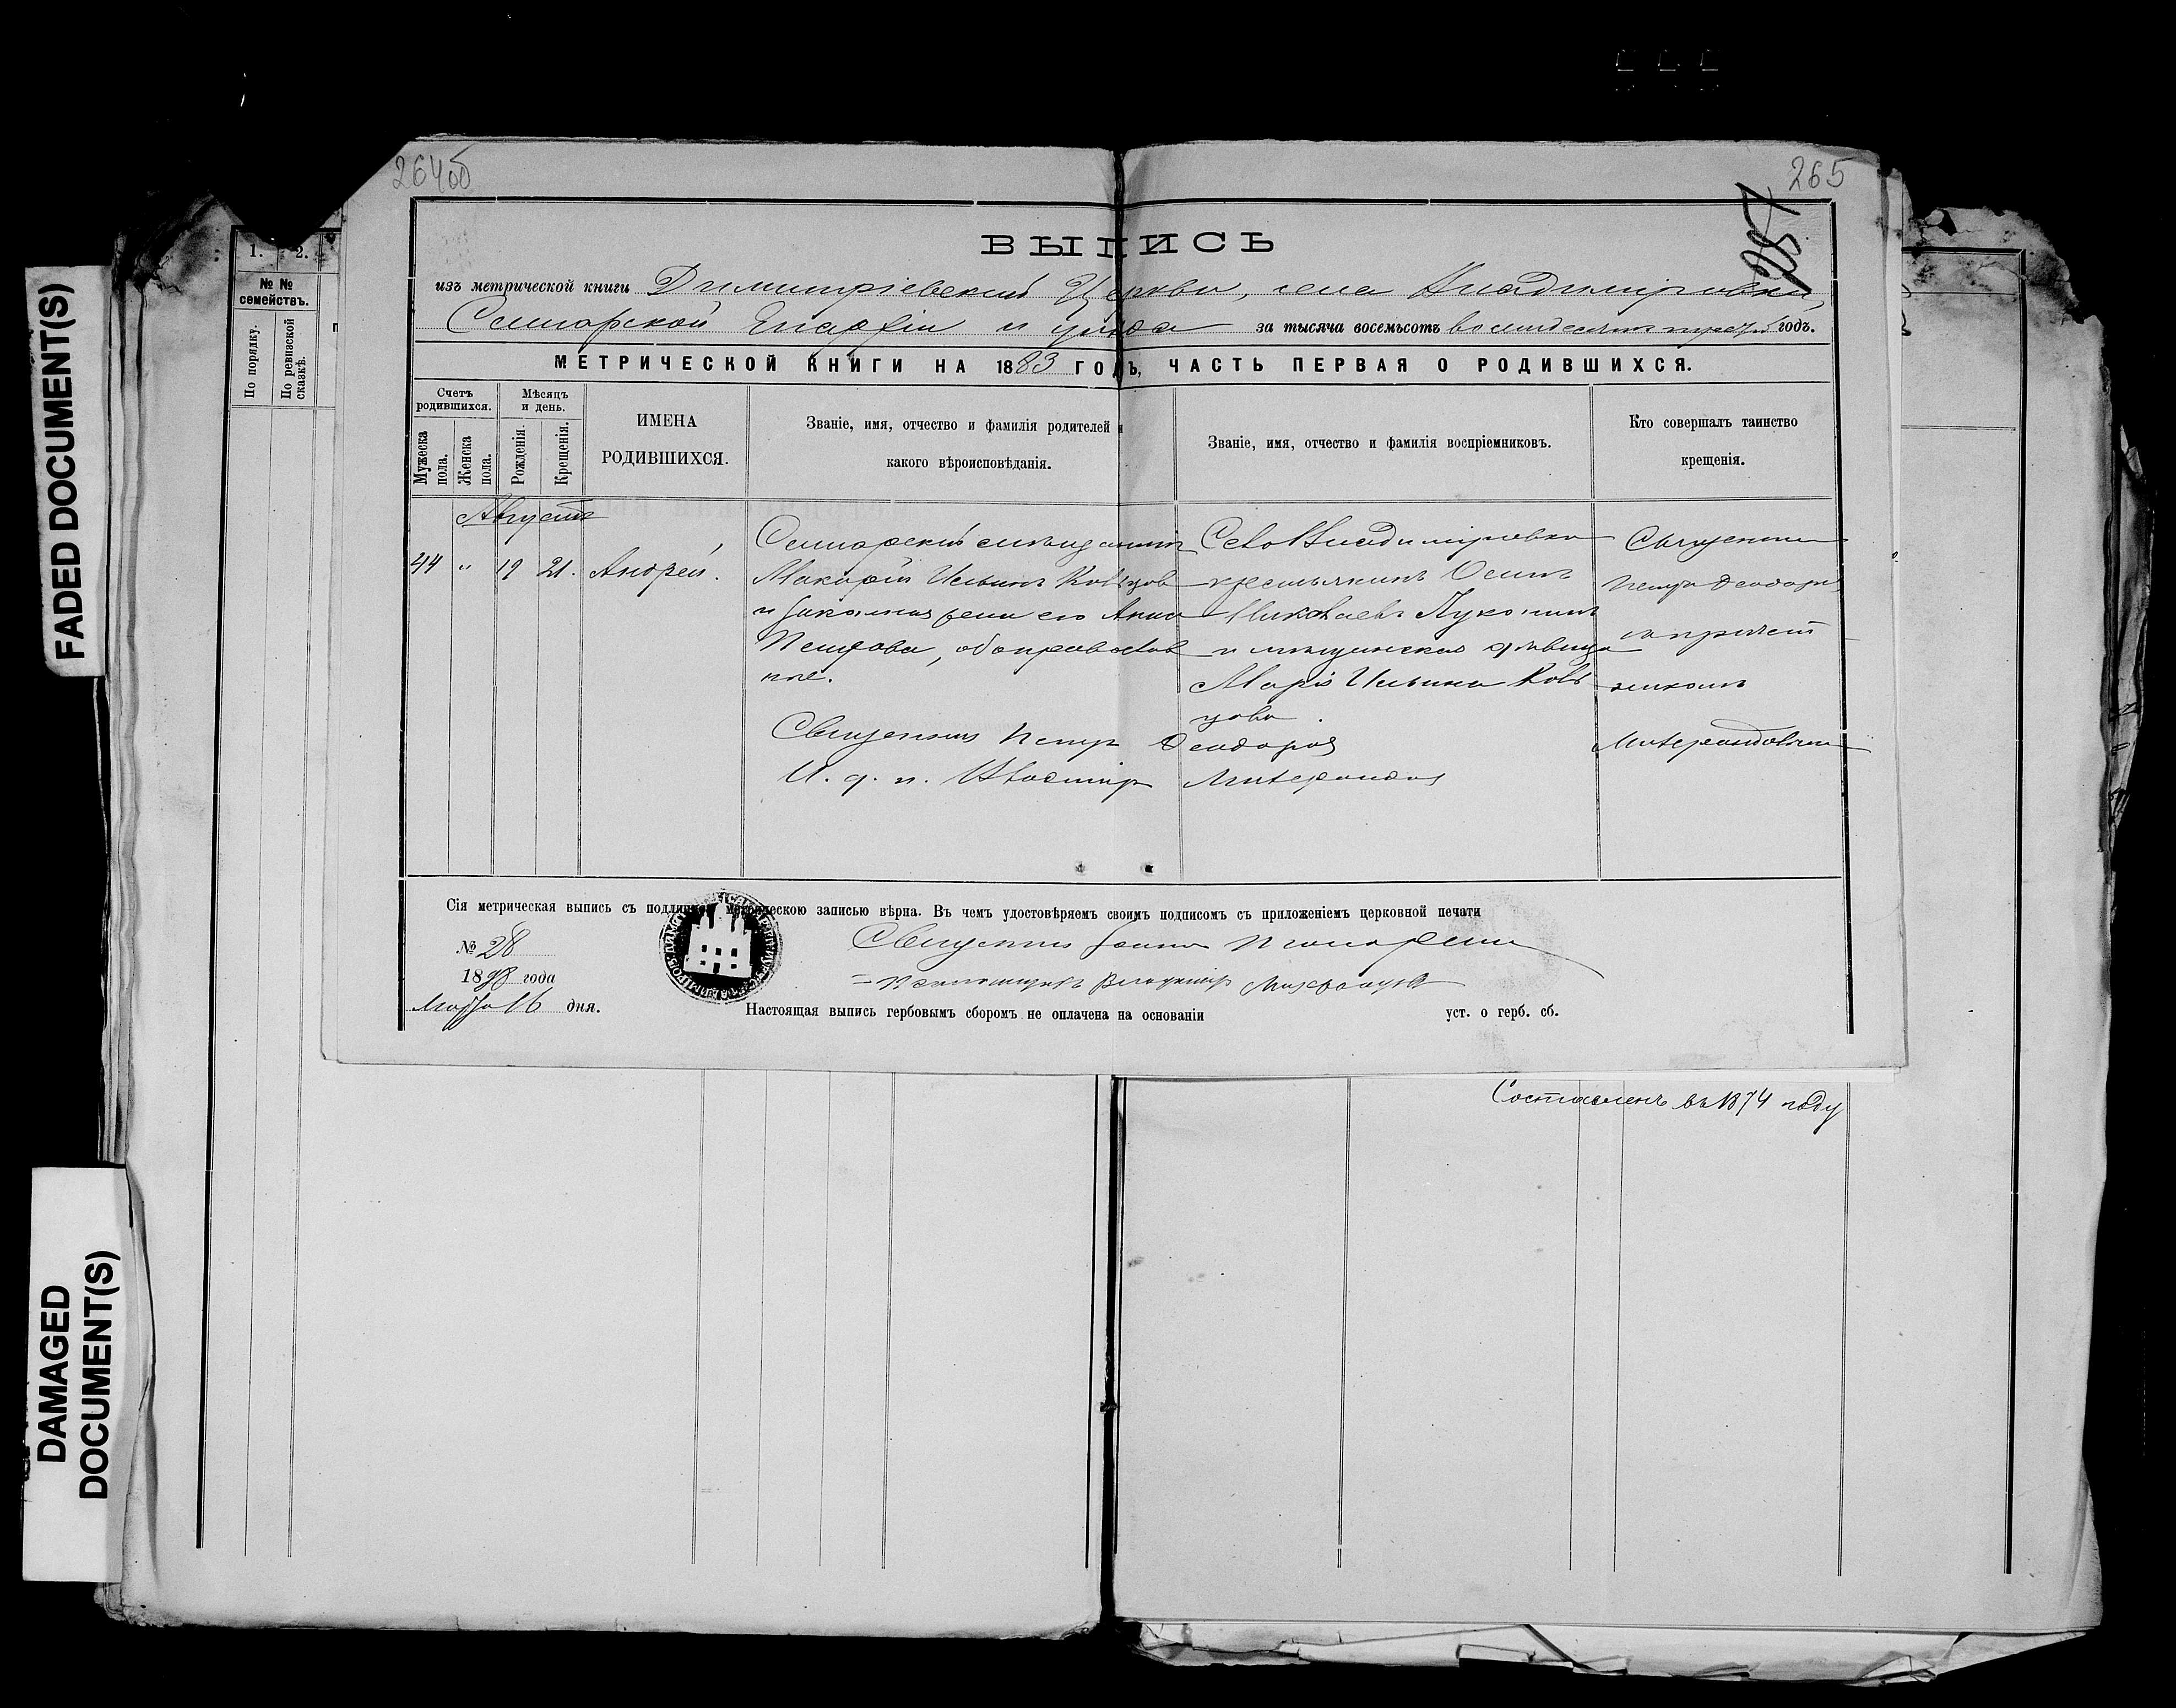 264об
265
287
FADED DOCUMENT(S)
DAMAGED
DOCUMENT(S)
1. 2.
№ №
семействъ.
По порядку.
По ревизской
сказкѣ.
ВЫПИСЬ
изъ метрической книги Димитріевской Церкви, села Владиміровки,
Самарской Епархіи и уѣзда за тысяча восемьсотъ восемьдесятъ третій годъ.
МЕТРИЧЕСКОЙ КНИГИ НА 1883 ГОДЪ, ЧАСТЬ ПЕРВАЯ О РОДИВШИХСЯ.
Счетъ
родившихся.
Мѣсяцъ
и день.
Мужеска
пола.
Женска
пола.
Рожденія.
Крещенія.
ИМЕНА
РОДИВШИХСЯ.
Званіе, имя, отчество и фамилія родителей и
какого вѣроисповѣданія.
Званіе, имя, отчество и фамилія воспріемниковъ.
Кто совершалъ таинство
крещенія.
Августъ
44 " 19 21. Андрей.
Самарскій мѣщанинъ
Макарій Ильинъ
и законная жена его Анна
Петрова, оба православ
ные.
Священникъ Петръ Феодоровъ
И. д. п. Владиміръ
Село Владиміровки
крестьянинъ Осипъ
Николаевъ Лукошинъ
и мѣщанская дѣвица
Марія Ильина
цова.
Священникъ
Петръ Феодоровъ
съ причет
никомъ
№ 28
1898 года
Марта 16 дня.
Сія метрическая выпись съ подлинною метрическою записью вѣрна. Въ чемъ удостовѣряемъ своимъ подписомъ съ приложеніемъ церковной печати
Священникъ Іоаннъ
Псаломщикъ Владиміръ
Настоящая выпись гербовымъ сборомъ не оплачена на основаніи уст. о герб. сб.
Составленъ въ 1874 году